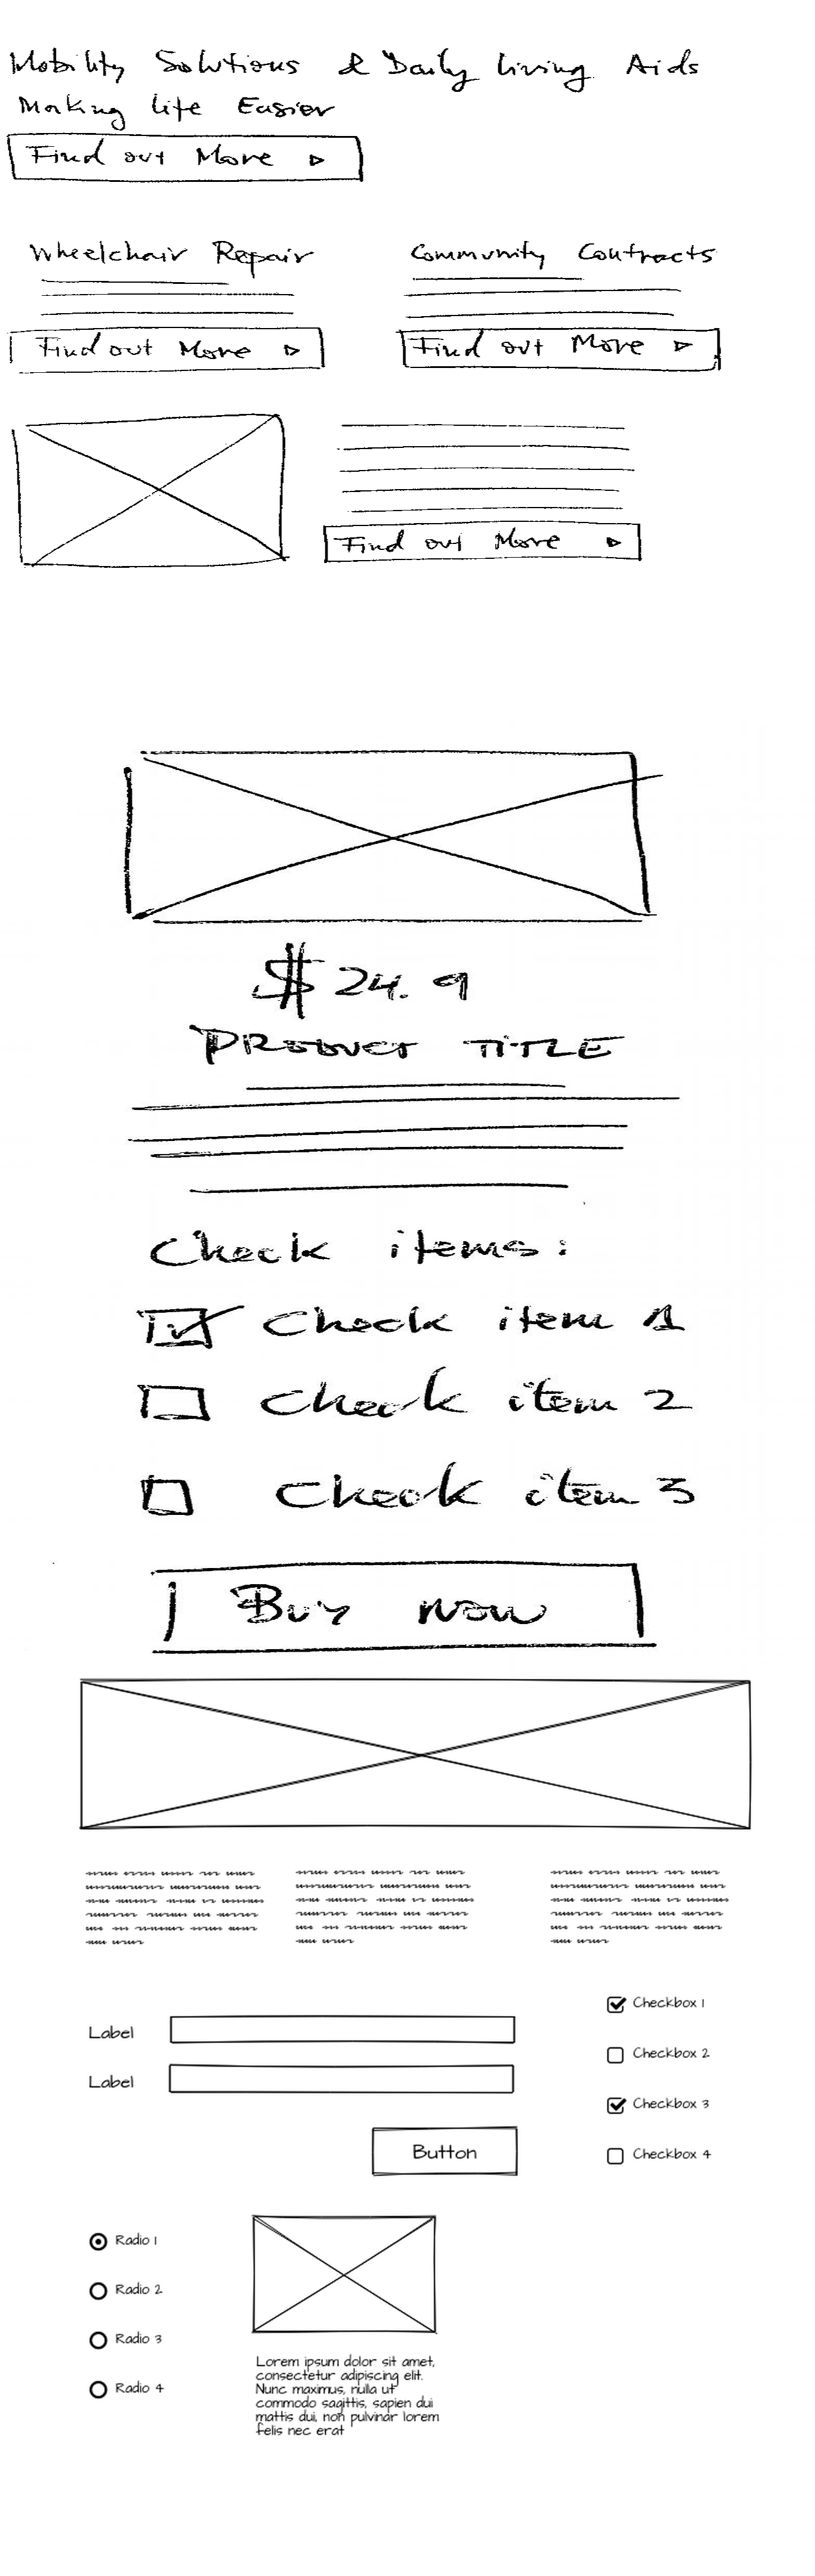 Mobility Solutions & Daily Living Aids
Making Life Easier
Find out More
Wheelchair Repair
Community Contracts
Find out More
Find out More
Find out More
$24.9
PRODUCT TITLE
Check items:
Check item 1
Check item 2
Check item 3
Buy now
Label
Label
Button
Checkbox 1
Checkbox 2
Checkbox 3
Checkbox 4
Radio 1
Radio 2
Radio 3
Radio 4
Lorem ipsum dolor sit amet,
consectetur adipiscing elit.
Nunc maximus, nulla ut
commodo sagittis, sapien dui
mattis dui, non pulvinar lorem
felis nec erat